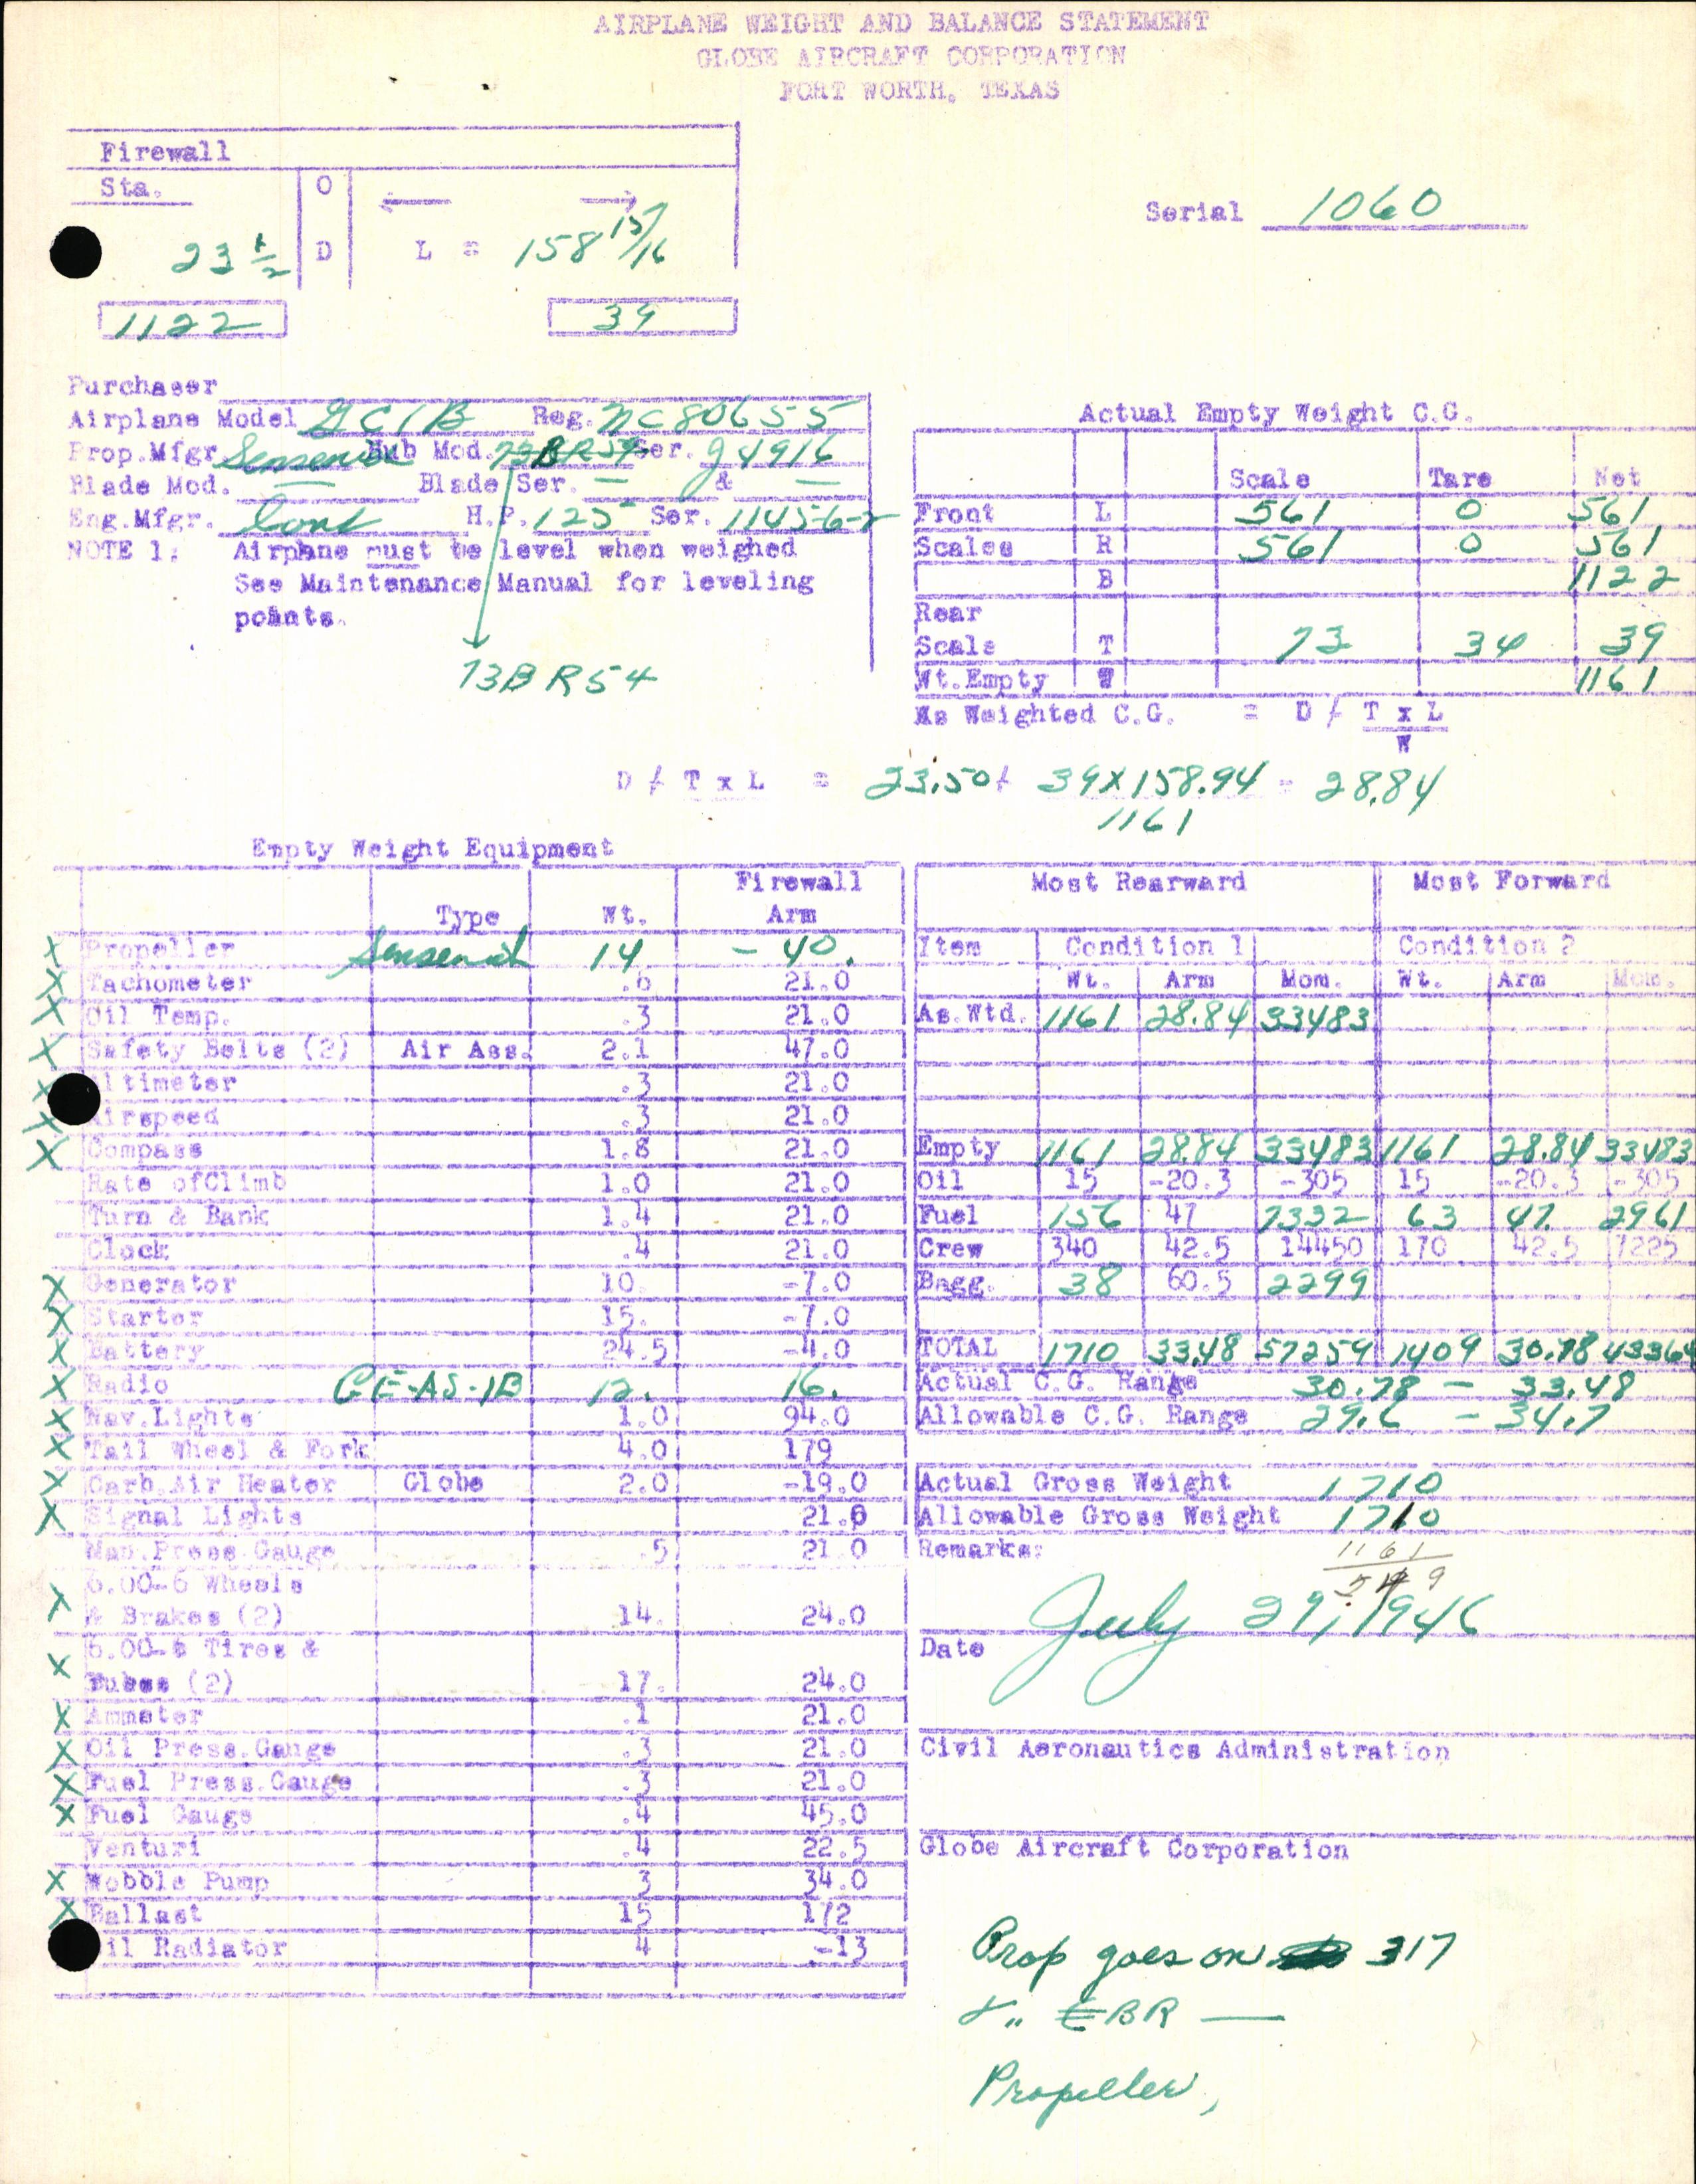 AIRPLANE WEIGHT AND BALANCE STATEMENT
GLOBE AIRCRAFT CORPORATION
FORT WORTH, TEXAS
Firewall
Sta. O
23 1/2 D L = 158 15/16
1122 39
Serial 1060
Purchaser
Airplane Model GC1B Reg. NC80655
Prop.Mfgr Sensenich Hub Mod. 73BR54 Ser. J4916
Blade Mod. — Blade Ser. — & —
Eng.Mfgr. Cont H.P. 125 Ser.
NOTE 1: Airplane must be level when weighed
See Maintenance Manual for leveling
points.
73BR54
Actual Empty Weight C.G.
Scale Tare Net
Front L 561 0 561
Scales R 561 0 561
B 1122
Rear
Scale T 73 34 39
Wt.Empty W 1161
As Weighted C.G. = D / T x L
W
D / T x L = 23.50 / 39 x 158.94 = 28.84
1161
Empty Weight Equipment
Firewall
Type Wt. Arm
X Propeller Sensenich 14 -40.
X Tachometer .6 21.0
X Oil Temp. .3 21.0
X Safety Belts (2) Air Ass. 2.1 47.0
X ltimeter .3 21.0
X irspeed .3 21.0
X Compass 1.8 21.0
Rate ofClimb 1.0 21.0
Turn & Bank 1.4 21.0
Clock .4 21.0
X Generator 10. -7.0
X Starter 15. -7.0
X Battery 24.5 -4.0
X Radio GE-AS-1B 12. 16.
X Nav.Lights 1.0 94.0
X Tail Wheel & Fork 4.0 179
X Carb.Air Heater Globe 2.0 -19.0
X Signal Lights 21.0
Man.Press.Gauge .5 21.0
6.00-6 Wheels
X & Brakes (2) 14. 24.0
6.00-6 Tires &
X Tubes (2) 17. 24.0
X Ammeter .1 21.0
X Oil Press.Gauge .3 21.0
X Fuel Press.Gauge .3 21.0
X Fuel Gauge .4 45.0
Venturi .4 22.5
X Wobble Pump 3 34.0
X Ballast 15 172
il Radiator 4 -13
Most Rearward Most Forward
Item Condition 1 Condition 2
Wt. Arm Mom. Wt. Arm Mom.
As.Wtd. 1161 28.84 33483
Empty 1161 28.84 33483 1161 28.84 33483
Oil 15 -20.3 -305 15 -20.3 -305
Fuel 156 47 7332 63 47. 2961
Crew 340 42.5 14450 170 42.5 7225
Bagg. 38 60.5 2299
TOTAL 1710 33.48 57259 1409 30.78 43364
Actual C.G. Range 30.78 — 33.48
Allowable C.G. Range 29.6 — 34.7
Actual Gross Weight 1710
Allowable Gross Weight 1710
Remarks: 1161
549
July 29, 1946
Date
Civil Aeronautics Administration
Globe Aircraft Corporation
Prop goes on 317
BR —
Propeller,